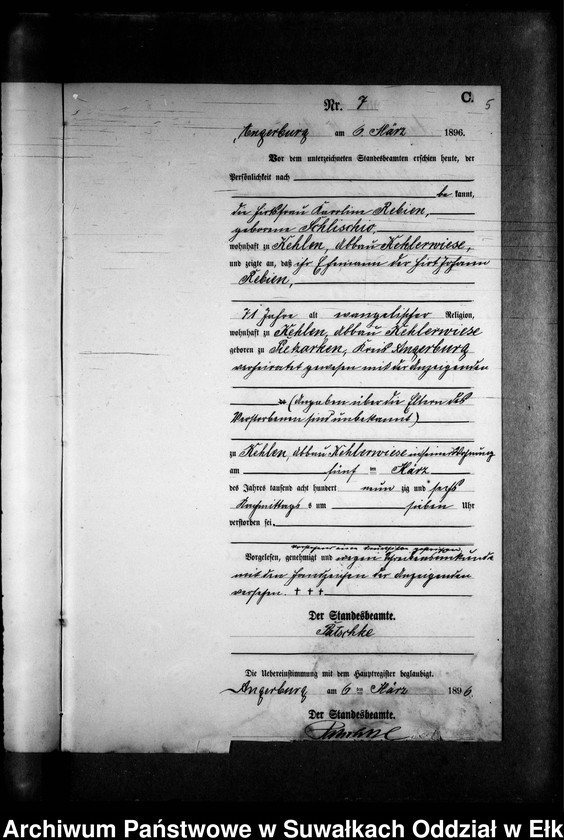 C.
5
Nr. 7
Angerburg am 6 März 1896.
Vor dem unterzeichneten Standesbeamten erschien heute, der
Persönlichkeit nach
be kannt,
die Hirtsfrau Karoline Rebien,
geborene Schlischio,
wohnhaft zu Kehlen, Abbau Kehlerwiese,
und zeigte an, daß ihr Ehemann der Hirt Johann
Rebien,
71 Jahre alt evangelischer Religion,
wohnhaft zu Kehlen, Abbau Kehlerwiese
geboren zu Kreis Angerburg
verheiratet gewesen mit der Anzeigenden
(Angaben über die Eltern des
Verstorbenen sind unbekannt)
zu Kehlen, Abbau Kehlerwiese in seiner Wohnung
am fünf ten März
des Jahres tausend acht hundert neun zig und sechs
Nachmittags um sieben Uhr
verstorben sei.
Vorgelesen, genehmigt und wegen Schreibensunkunde
mit den Handzeichen der Anzeigenden
versehen. † † †
Der Standesbeamte.
Patschke
Die Uebereinstimmung mit dem Hauptregister beglaubigt.
Angerburg am 6 ten März 1896.
Der Standesbeamte.
Archiwum Państwowe w Suwałkach Oddział w Ełk